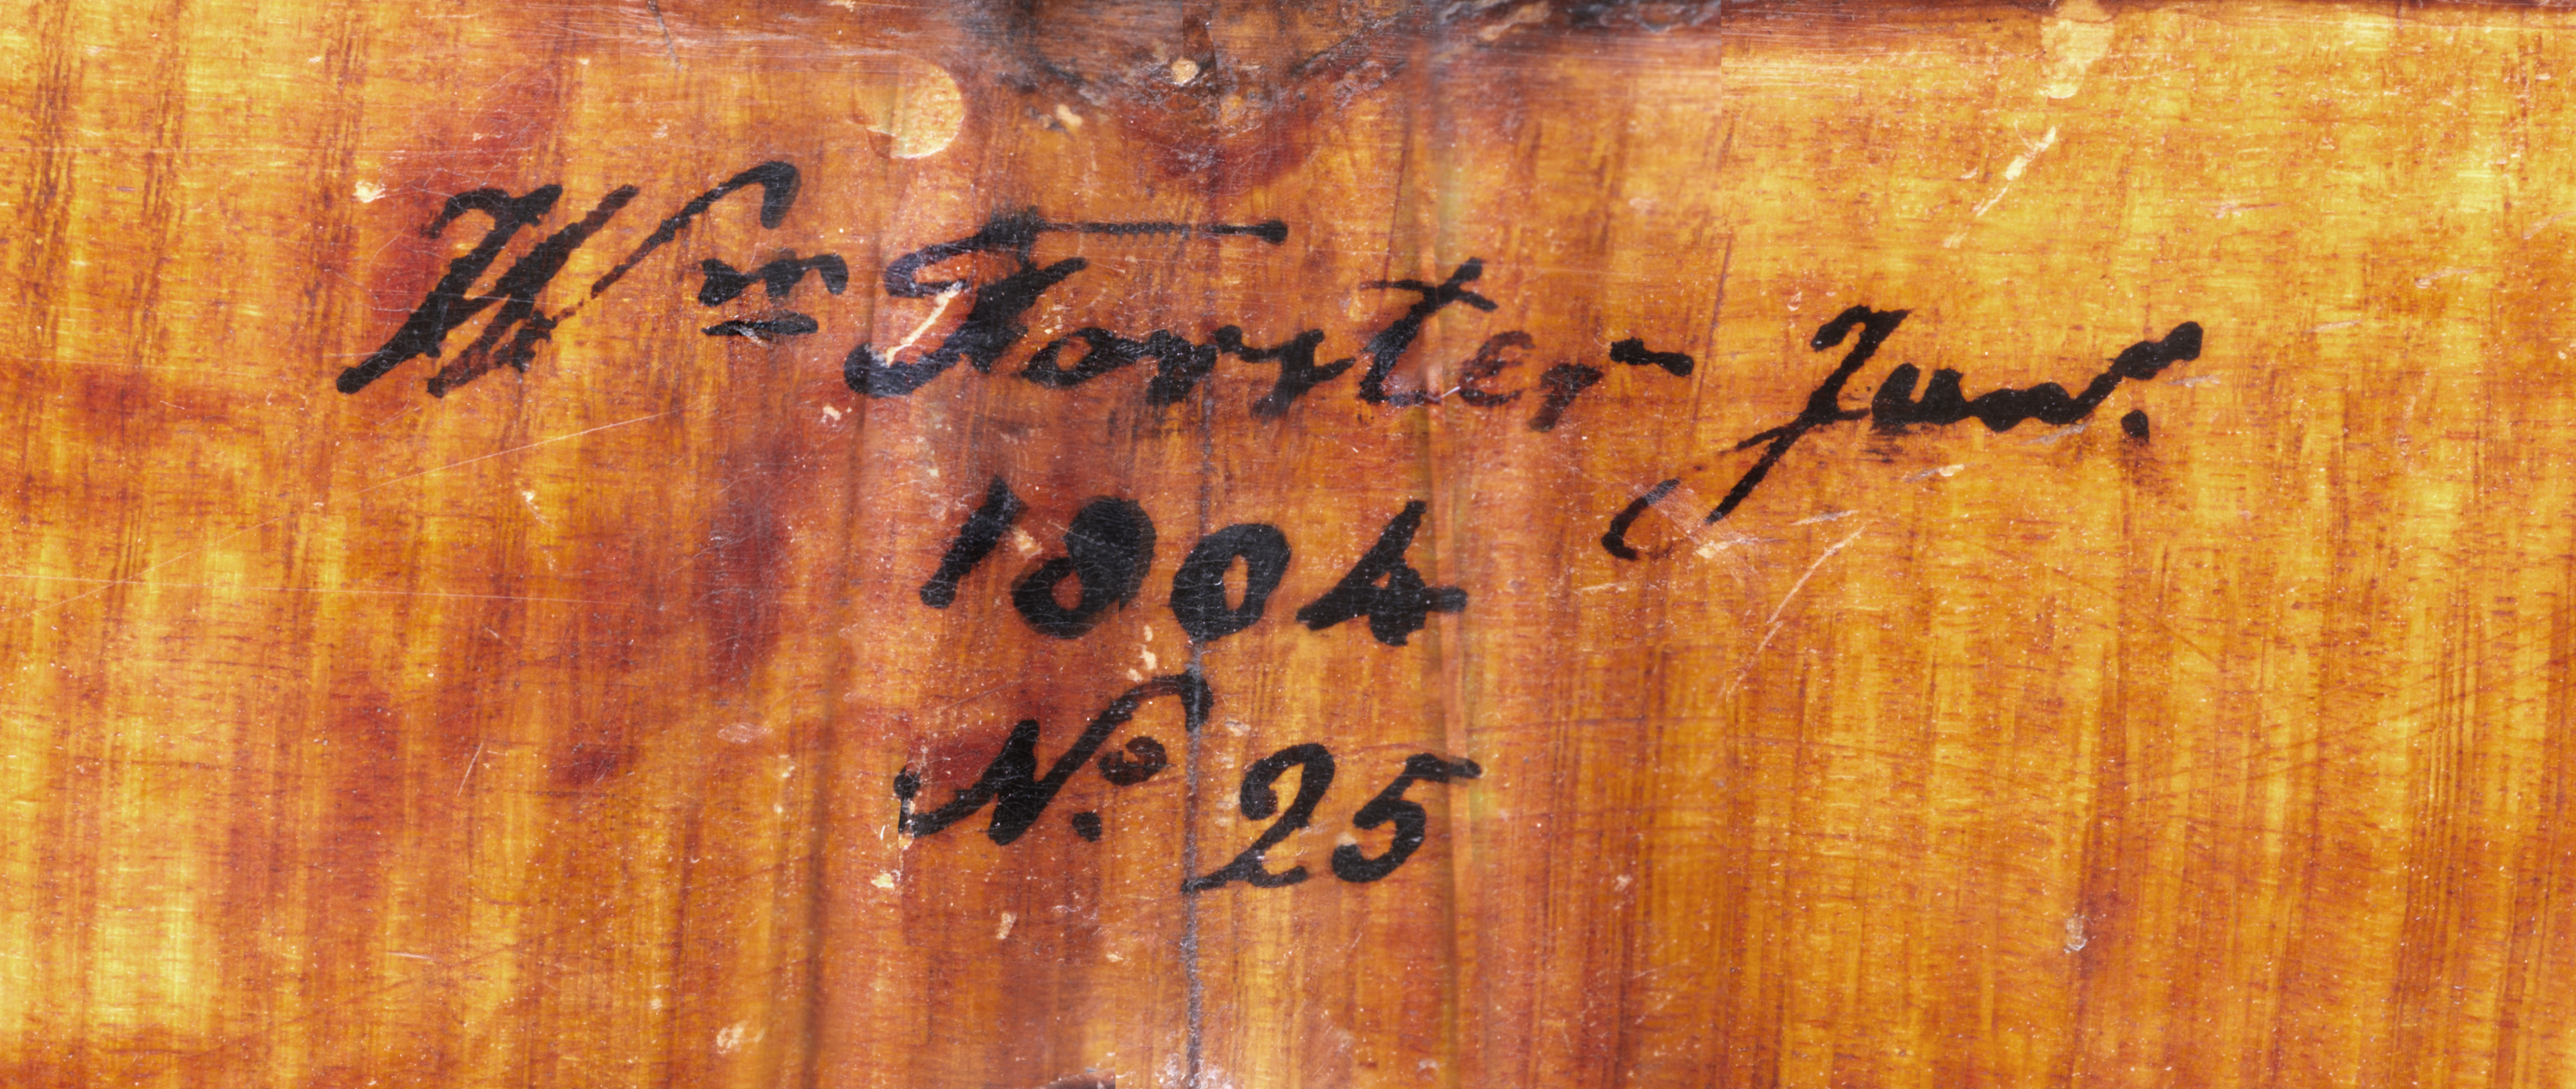 Wm Forster Junr.
1804
No. 25